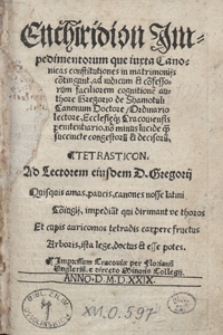 Enchiridion Im-
pedimentorum que iuxta Cano-
nicas constitutiones in matrimonijs
cōtingunt, ad iudicum & cōfesso-
rum faciliorem cognitionē au-
thore Gregorio de Shamotuli
Canonum Doctore, Ordinario
lectore, Ecclesięq; Cracouiensis
penitentiario, nō minus lucide q̄
succincte congestorū & decisorū.
TETRASTICON.
Ad Lectorem eiusdem D. Gregorij
Quisquis amas, paucis, canones nosse latini
Coniugij, impediāt qui dirimant ve thoros
Et cupis auricomos tetradis carpere fructus
Arboris, ista lege, doctus & esse potes.
Impressum Cracouiæ per Florianū
Vngleriū, e directo Minoris Collegij.
ANNO. D. M. D. XXIX.
XVI.O.597